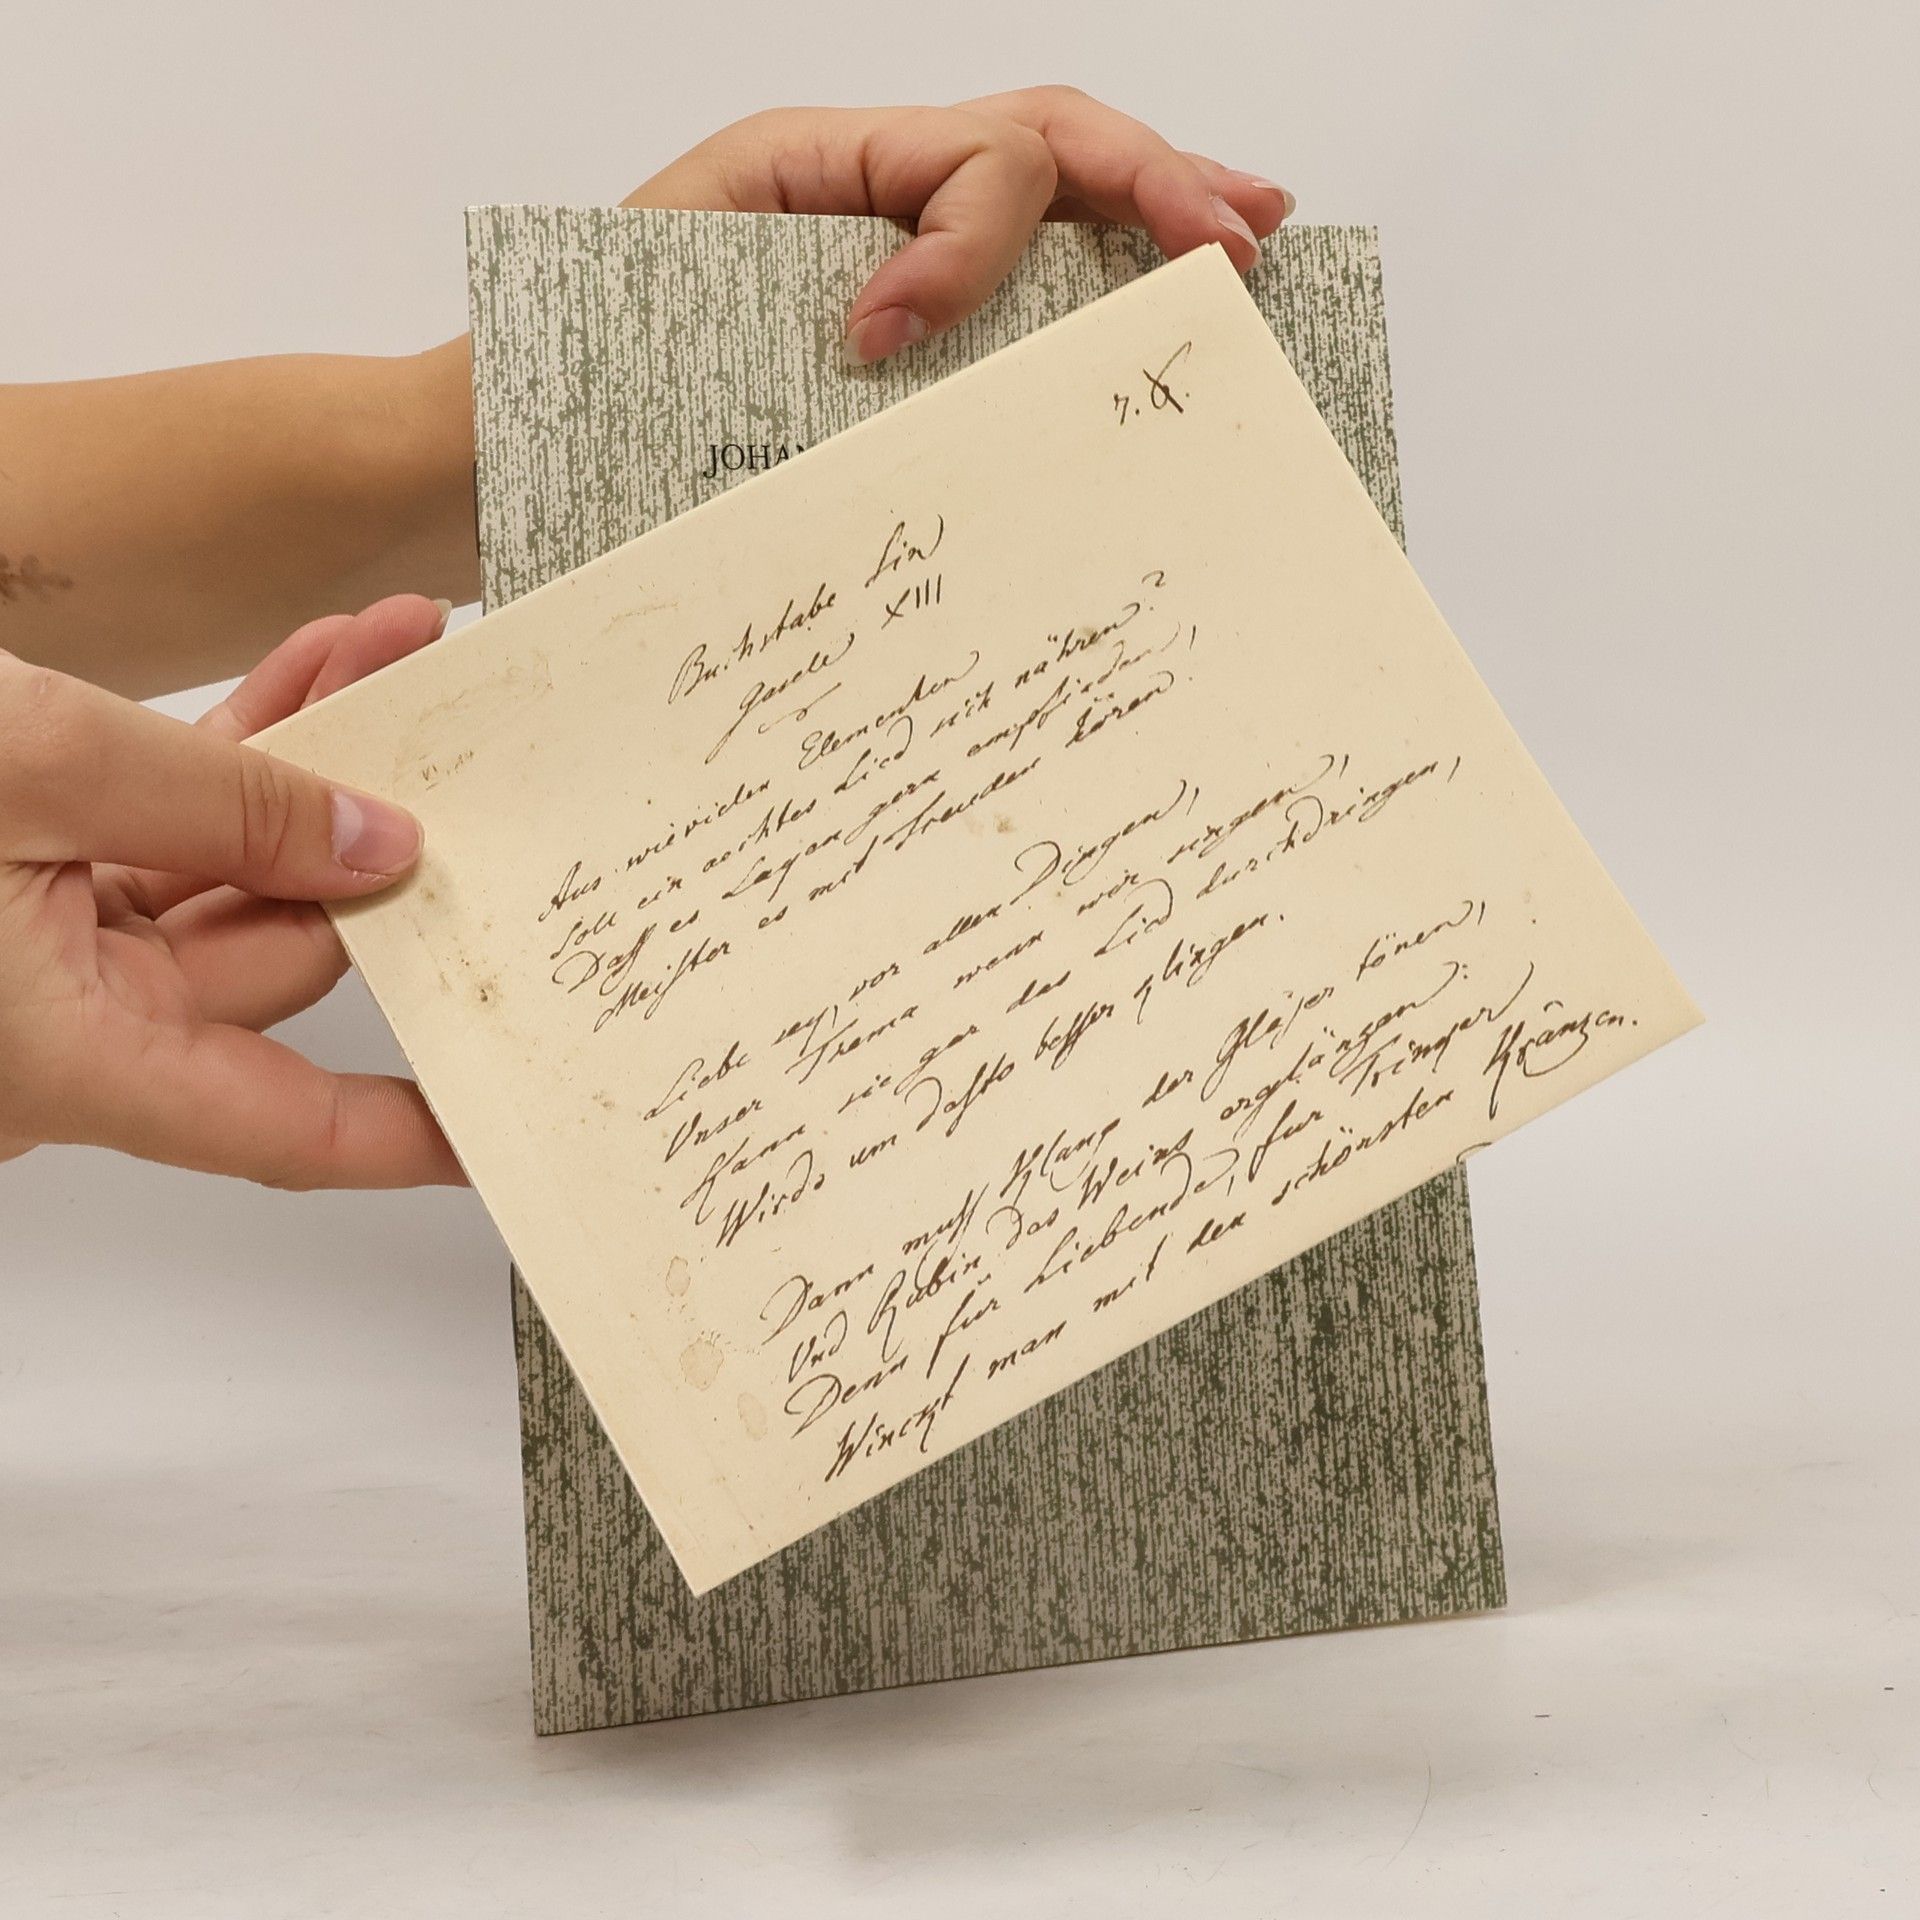 JOHAN
7.
Buchstabe Sin
Gasele XIII
Aus wievielen Elementen
Soll ein aechtes Lied sich nähren?
Daß es Layen gern empfinden,
Meister es mit Freuden hören.
Liebe sey, vor allen Dingen,
Unser Thema wenn wir singen,
Kann sie gar das Lied durchdringen,
Wirds um desto besser klingen.
Dann muß Klang der Gläser tönen,
Und Rubin das Weins erglänzen:
Denn für Liebende, fur Trincker
Winckt man mit den schönsten Kränzen.